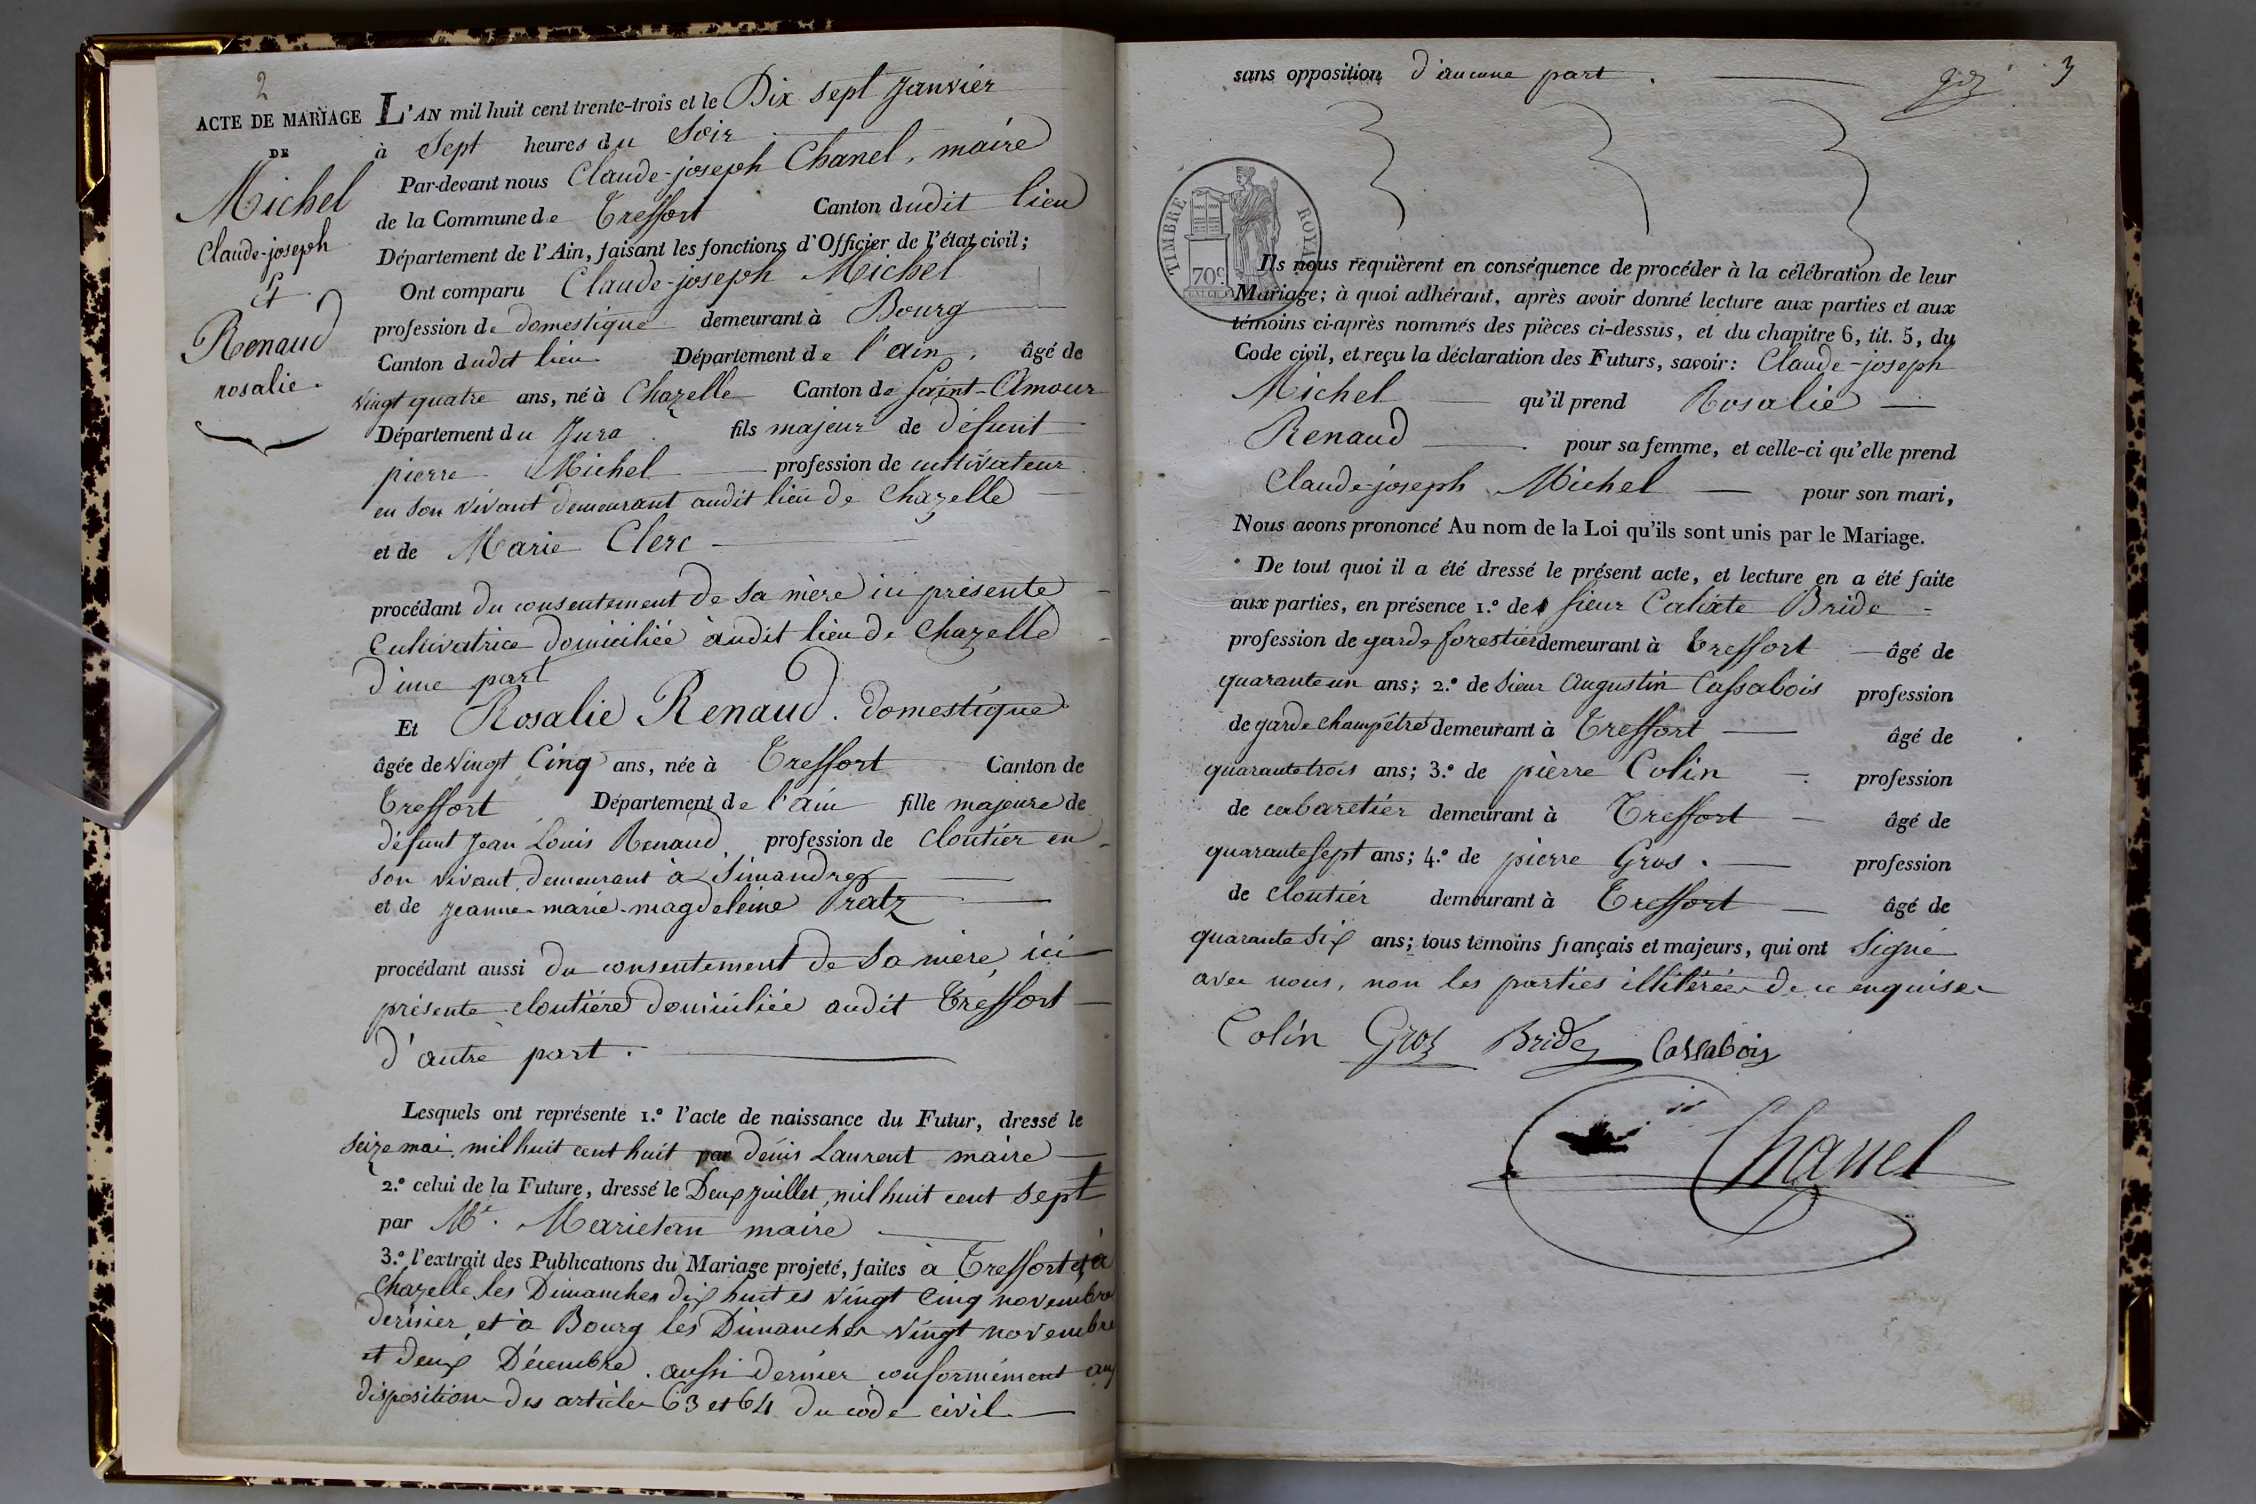 2
ACTE DE MARIAGE
DE
Michel
Claude-joseph
Et
Renaud
rosalie.
L'AN mil huit cent trente-trois et le Dix sept Janvier
à Sept heures du Soir
Par-devant nous Claude-joseph Chanel, maire
de la Commune de Treffort Canton dudit lieu
Département de l'Ain, faisant les fonctions d'Officier de l'état civil;
Ont comparu Claude-joseph Michel
profession de domestique demeurant à Bourg
Canton dudit lieu Département de l'ain, âgé de
vingt quatre ans, né à Chazelle Canton de Saint-Amour
Département du Jura fils majeur de défunt
pierre Michel profession de cultivateur
en son vivant demeurant audit lieu de Chazelle
et de Marie Clerc
procédant du consentement de sa mère ici présente
Cultivatrice domiciliée audit lieu de Chazelle
d'une part
Et Rosalie Renaud. domestique
âgée de vingt Cinq ans, née à Treffort Canton de
Treffort Département de l'ain fille majeure de
défunt Jean Louis Renaud profession de cloutier en
son vivant demeurant à Simandre
et de jeanne-marie-magdeleine Pratz
procédant aussi du consentement de sa mère, ici
présente cloutière domiciliée audit Treffort
d'autre part.
Lesquels ont représenté 1.º l'acte de naissance du Futur, dressé le
seize mai mil huit cent huit par denis Laurent maire
2.º celui de la Future, dressé le Deux juillet, mil huit cent sept
par Mr. Marietan maire
3.º l'extrait des Publications du Mariage projeté, faites à Treffort et à
Chazelle les Dimanches dix huit et vingt Cinq novembre
dernier, et à Bourg les Dimanches vingt novembre
et deux Décembre aussi dernier conformément aux
dispositions des articles 63 et 64 du code civil
3
sans opposition d'aucune part.
TIMBRE ROYAL
70c.
Ils nous requièrent en conséquence de procéder à la célébration de leur
Mariage; à quoi adhérant, après avoir donné lecture aux parties et aux
témoins ci-après nommés des pièces ci-dessus, et du chapitre 6, tit. 5, du
Code civil, et reçu la déclaration des Futurs, savoir: Claude-joseph
Michel qu'il prend Rosalie
Renaud pour sa femme, et celle-ci qu'elle prend
Claude-joseph Michel pour son mari,
Nous avons prononcé Au nom de la Loi qu'ils sont unis par le Mariage.
De tout quoi il a été dressé le présent acte, et lecture en a été faite
aux parties, en présence 1.º de sieur Calixte Bride
profession de garde forestier demeurant à Treffort âgé de
quarante un ans; 2.º de Sieur Augustin Cassabois profession
de garde champêtre demeurant à Treffort âgé de
quarante trois ans; 3.º de pierre Colin profession
de cabaretier demeurant à Treffort âgé de
quarante sept ans; 4.º de pierre Gros. profession
de cloutier demeurant à Treffort âgé de
quarante six ans; tous témoins français et majeurs, qui ont signé
avec nous, non les parties illitérées de ce enquises
Colin Gros Bride Cassabois
Chanel